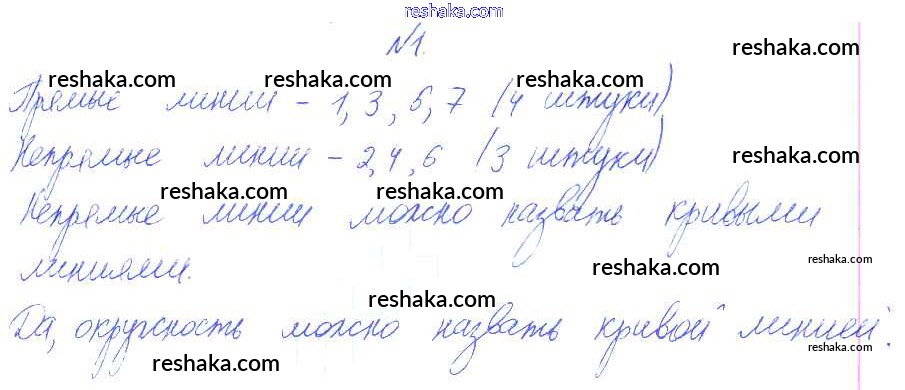 reshaka.com
№1.
reshaka.com
reshaka.com reshaka.com reshaka.com
Прямые линии - 1, 3, 5, 7 (4 штуки)
Непрямые линии - 2, 4, 6 (3 штуки)
reshaka.com
reshaka.com reshaka.com
Непрямые линии можно назвать кривыми
reshaka.com
линиями.
reshaka.com
reshaka.com
Да, окружность можно назвать кривой линией.
reshaka.com
reshaka.com